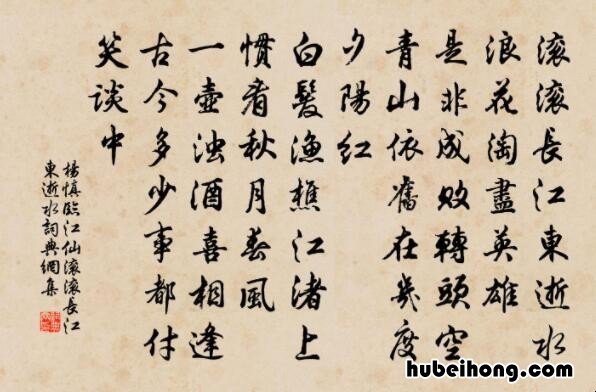 滚滚長江東逝水
浪花淘盡英雄
是非成敗轉頭空
青山依舊在幾度
夕陽紅
白髮漁樵江渚上
慣看秋月春風
一壺浊酒喜相逢
古今多少事都付
笑談中
楊慎臨江仙滚滚長江
東逝水詞典網集
hubeihong.com